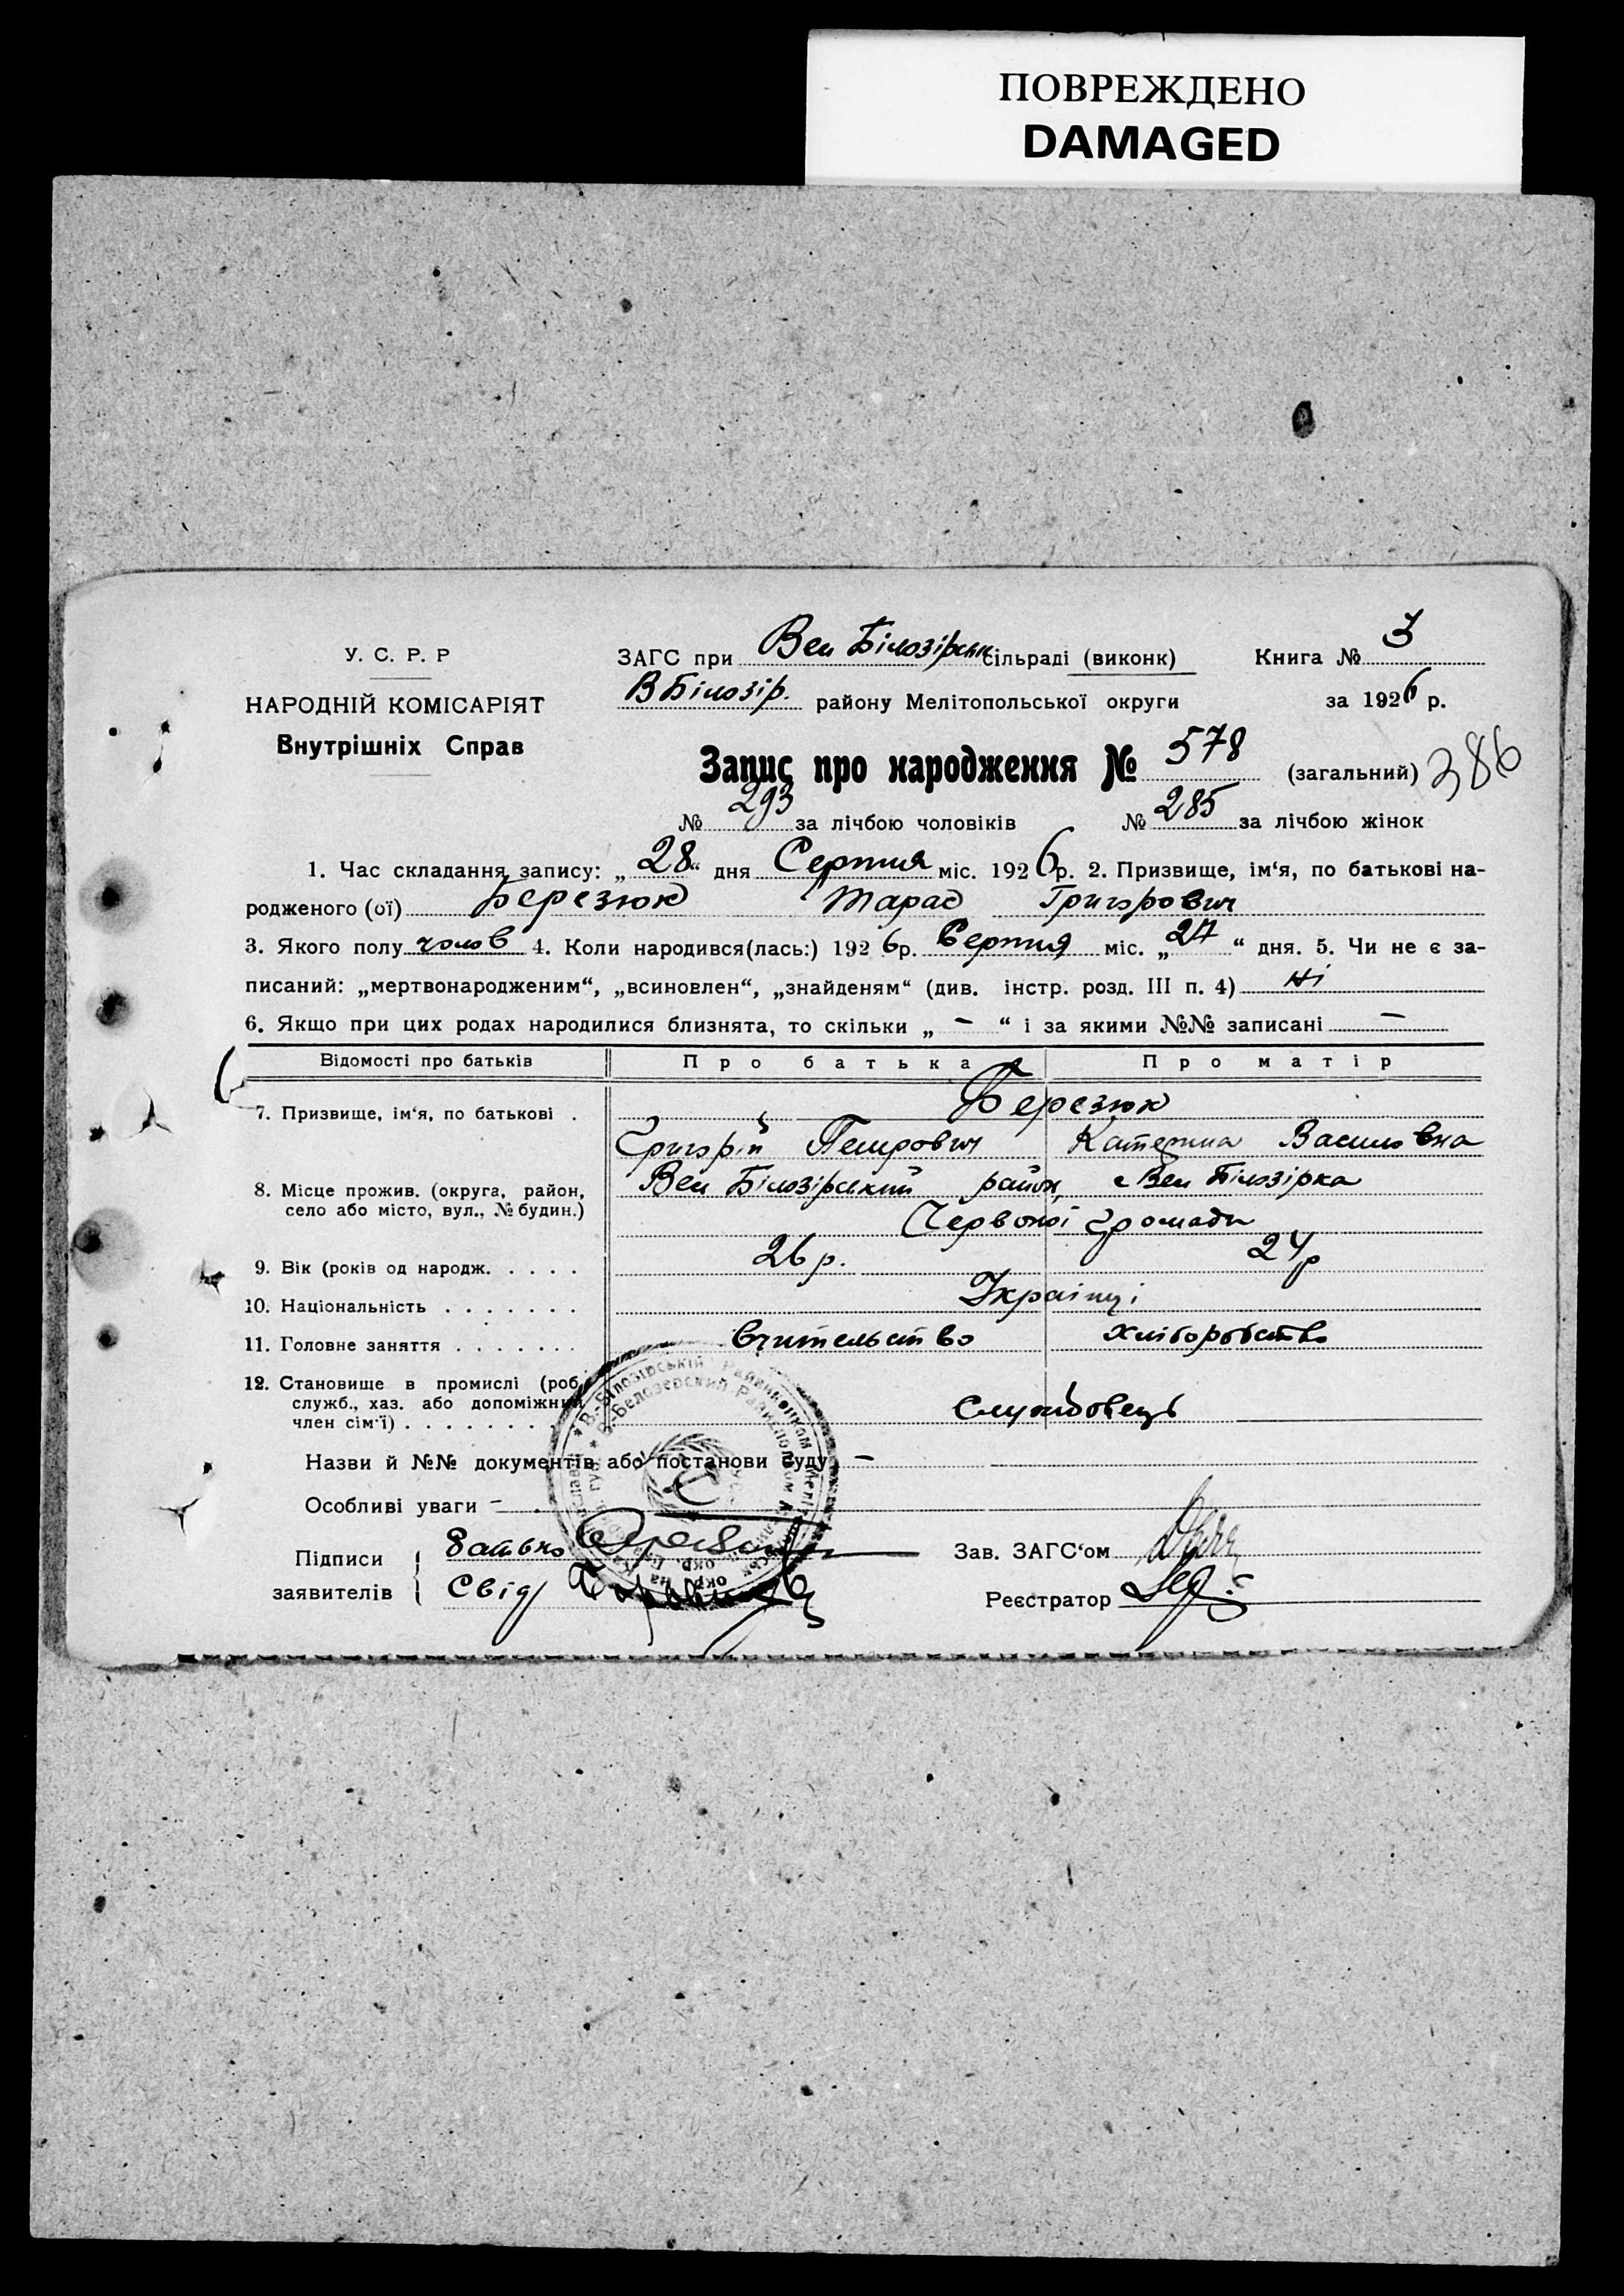 ПОВРЕЖДЕНО
DAMAGED
У. С. Р. Р
НАРОДНІЙ КОМІСАРІЯТ
Внутрішніх Справ
ЗАГС при Вел Білозірськ сільраді (виконк)
ВБілозір. району Мелітопольської округи
Книга № 3
за 1926 р.
Запис про народження № 578 (загальний) 386
№ 293 за лічбою чоловіків № 285 за лічбою жінок
1. Час складання запису: „28“ дня Серпня міс. 1926 р. 2. Призвище, ім‘я, по батькові на-
родженого (ої) Березюк Тарас Григорович
3. Якого полу чолов 4. Коли народився(лась:) 1926 р. Серпня міс. „27“ дня. 5. Чи не є за-
писаний: „мертвонародженим“, „всиновлен“, „знайденям“ (див. інстр. розд. III п. 4) Ні
6. Якщо при цих родах народилися близнята, то скільки „ – “ і за якими №№ записані –
Відомості про батьків Про батька Про матір
7. Призвище, ім‘я, по батькові . Березюк
Григорій Петрович Катерина Василовна
8. Місце прожив. (округа, район, Вел Білозірський район, с Вел Білозірка
село або місто, вул., № будин.)
Червоної Громади
9. Вік (років од народж. . . . . 26 р. 24 р
10. Національність . . . . . . . Українці
11. Головне заняття . . . . . . . Вчительство хліборобство
12. Становище в промислі (роб.
служб., хаз. або допоміжний
член сім‘ї) . . . . . . . . Службовець
Назви й №№ документів або постанови суду –
Особливі уваги –
Підписи
заявителів
батько
Свід
Зав. ЗАГС‘ом
Реєстратор